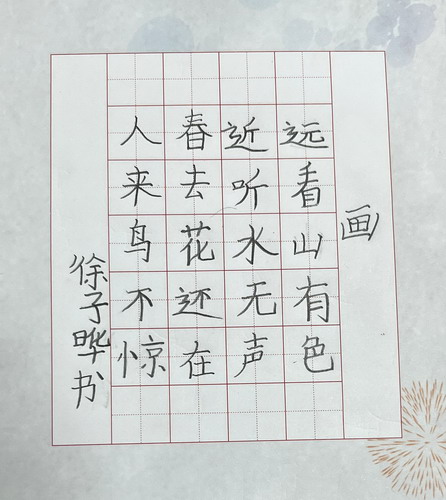 画
远看山有色
近听水无声
春去花还在
人来鸟不惊
徐子晔书